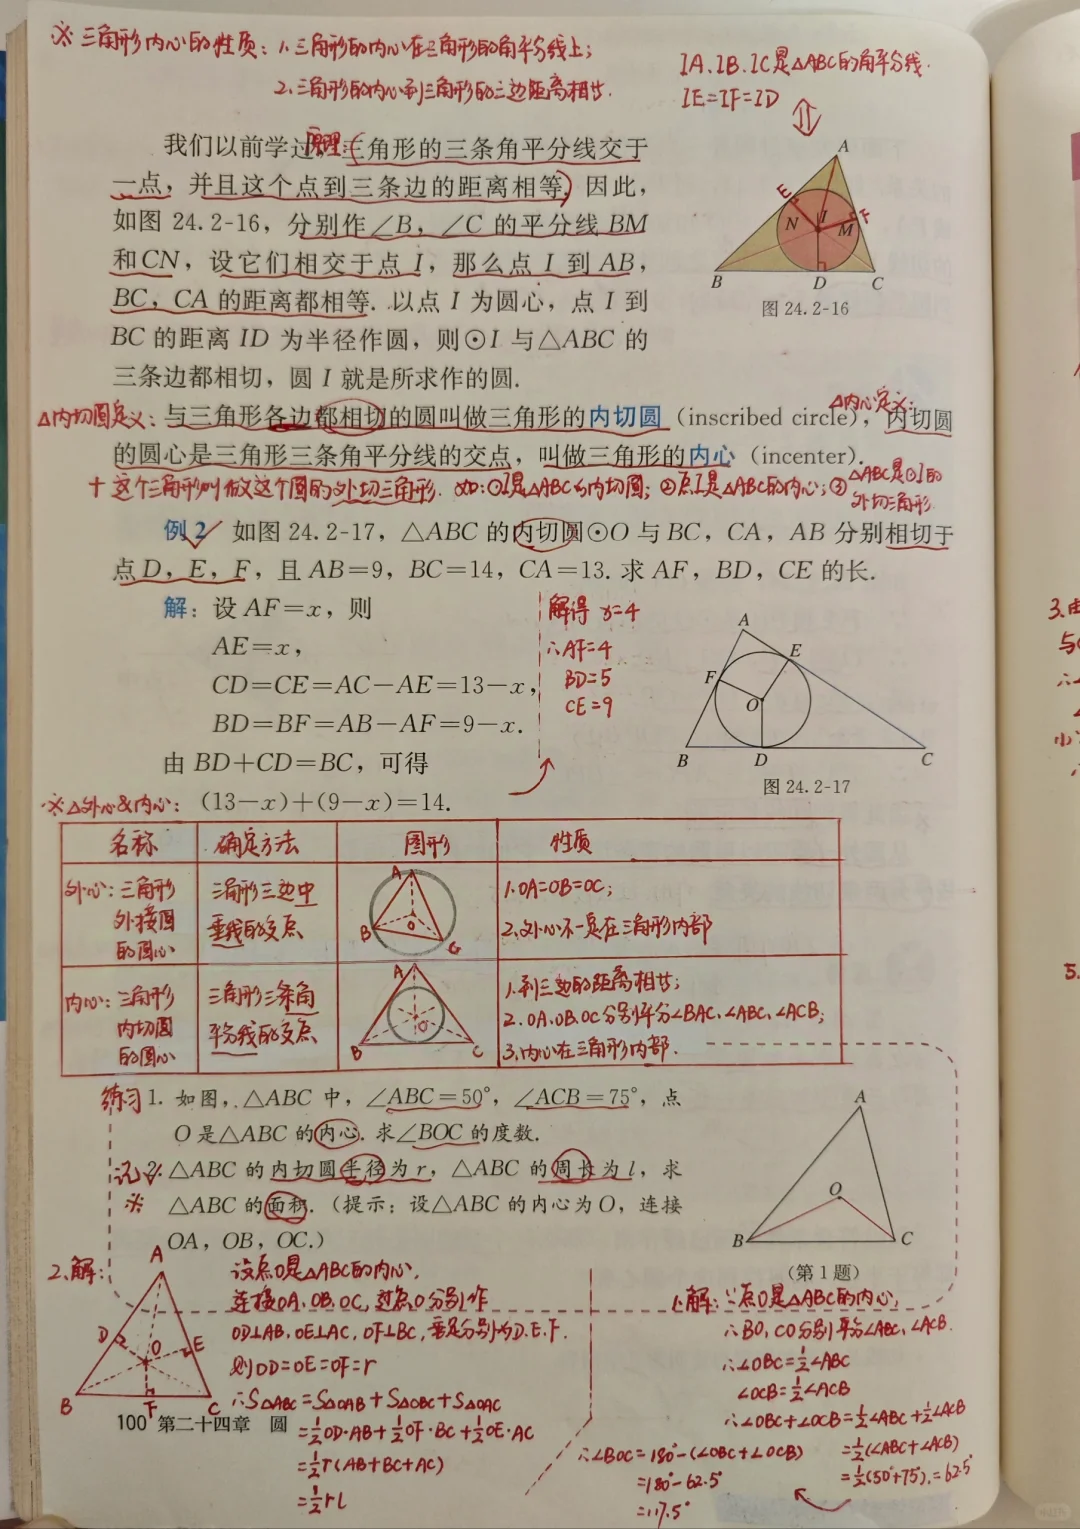 ※三角形内心的性质：1.三角形的内心在三角形的角平分线上；
2.三角形的内心到三角形的三边距离相等.
IA、IB、IC是△ABC的角平分线.
IE=IF=ID
我们以前学过，三角形的三条角平分线交于
原理：
一点，并且这个点到三条边的距离相等. 因此，
如图 24.2-16，分别作∠B，∠C 的平分线 BM
和CN，设它们相交于点 I，那么点 I 到 AB，
BC，CA 的距离都相等. 以点 I 为圆心，点 I 到
BC 的距离 ID 为半径作圆，则⊙I 与△ABC 的
三条边都相切，圆 I 就是所求作的圆.
A
E
F
N
I
M
B
D
C
图 24.2-16
△内切圆定义：与三角形各边都相切的圆叫做三角形的内切圆（inscribed circle），内切圆
△内心定义：
的圆心是三角形三条角平分线的交点，叫做三角形的内心（incenter）.
十 这个三角形叫做这个圆的外切三角形. 如：①⊙I是△ABC的内切圆；②点I是△ABC的内心；③△ABC是⊙I的
外切三角形.
例 2 如图 24.2-17，△ABC 的内切圆⊙O 与 BC，CA，AB 分别相切于
点 D，E，F，且 AB=9，BC=14，CA=13. 求 AF，BD，CE 的长.
解：设 AF=x，则
AE=x，
CD=CE=AC-AE=13-x，
BD=BF=AB-AF=9-x.
由 BD+CD=BC，可得
(13-x)+(9-x)=14.
解得 x=4
∴AF=4
BD=5
CE=9
A
E
F
O
B
D
C
图 24.2-17
※△外心&内心：
名称 确定方法 图形 性质
外心：三角形
外接圆
的圆心
三角形三边中
垂线的交点
A
O
B
C
1.OA=OB=OC；
2.外心不一定在三角形内部
内心：三角形
内切圆
的圆心
三角形三条角
平分线的交点
A
O
B
C
1.到三边的距离相等；
2.OA、OB、OC分别平分∠BAC、∠ABC、∠ACB；
3.内心在三角形内部.
练习
1. 如图，△ABC 中，∠ABC=50°，∠ACB=75°，点
O 是△ABC 的内心. 求∠BOC 的度数.
记
2. △ABC 的内切圆半径为 r，△ABC 的周长为 l，求
※
△ABC 的面积.（提示：设△ABC 的内心为 O，连接
OA，OB，OC.）
A
O
B
C
（第 1 题）
2.解：
A
D
O
E
B
F
C
设点O是△ABC的内心，
连接OA、OB、OC，过点O分别作
OD⊥AB，OE⊥AC，OF⊥BC，垂足分别为D、E、F.
则OD=OE=OF=r
∴S△ABC=S△OAB+S△OBC+S△OAC
=½OD·AB+½OF·BC+½OE·AC
=½r(AB+BC+AC)
=½rl
1.解：∵点O是△ABC的内心，
∴BO，CO分别平分∠ABC、∠ACB.
∴∠OBC=½∠ABC
∠OCB=½∠ACB
∴∠OBC+∠OCB=½∠ABC+½∠ACB
=½(∠ABC+∠ACB)
=½(50°+75°)=62.5°
∴∠BOC=180°-(∠OBC+∠OCB)
=180°-62.5°
=117.5°
100 第二十四章 圆
3.由
与
小
5.